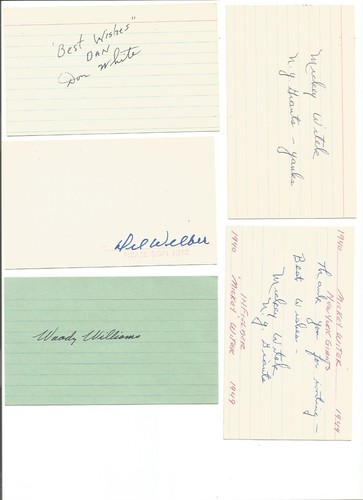 "Best Wishes"
DAN
Don White
Mickey Witek
N.Y. Giants – Yanks
Del Wilber
PLEASE SIGN HERE
Woody Williams
1940 "MICKEY WITEK" 1949
NEW YORK GIANTS
Thank you for writing –
Best Wishes,
Mickey Witek
N.Y. Giants
INFIELDER
1940 "MICKEY WITEK" 1949